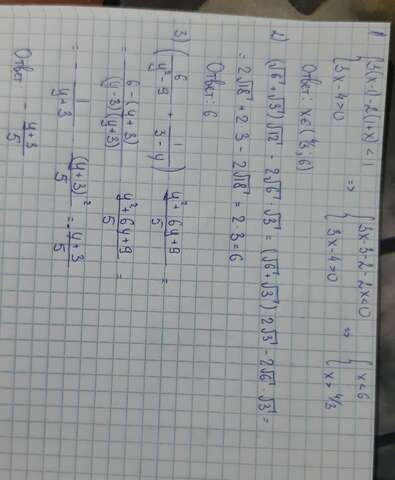 1 { 3(x-1)-2(1+x)<1 => { 3x-3-2-2x<0 => { x<6
{ 3x-4>0 { 3x-4>0 { x>4/3
Ответ: x∈(4/3, 6)
2) (√6+√3)√12 - 2√6·√3 = (√6+√3)·2√3 - 2√6·√3 =
= 2√18 + 2·3 - 2√18 = 2·3 = 6
Ответ: 6
3) (6/(y²-9) + 1/(3-y)) · (y²+6y+9)/5 =
= (6-(y+3))/((y-3)(y+3)) · (y²+6y+9)/5 =
= -1/(y+3) · (y+3)²/5 = -(y+3)/5
Ответ -(y+3)/5